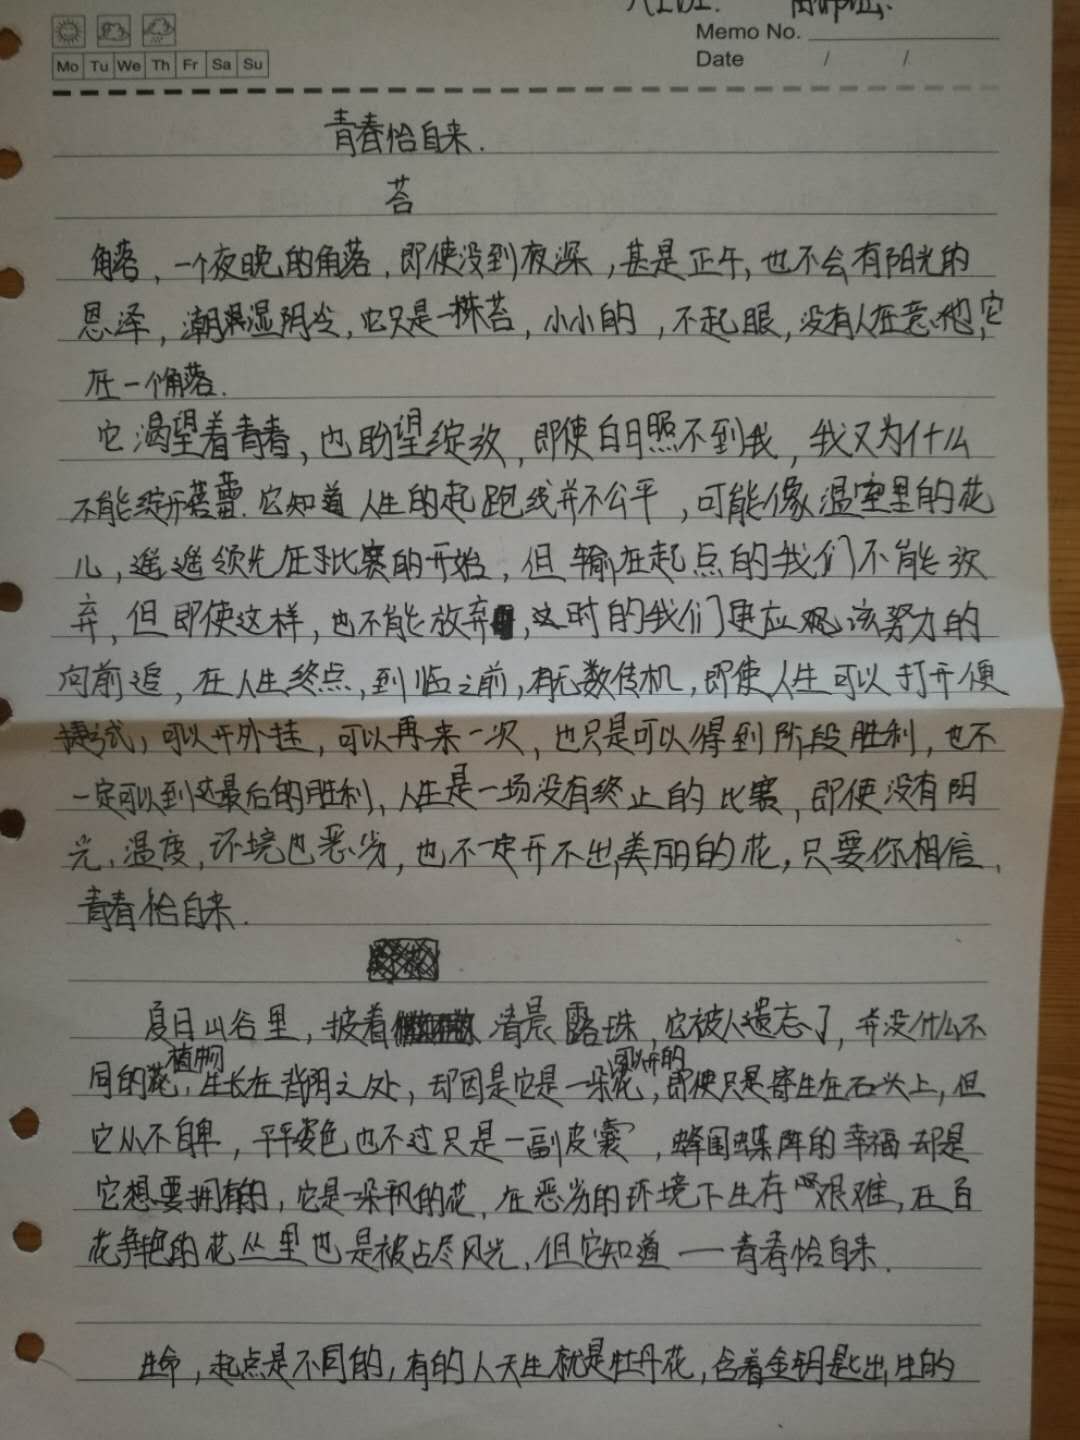 Memo No.
Date / /
Mo Tu We Th Fr Sa Su
青春恰自来.
苔
角落,一个夜晚的角落,即使没到夜深,甚是正午,也不会有阳光的
恩泽,潮湿阴冷,它只是一株苔,小小的,不起眼,没有人在意他,它
在一个角落.
它渴望着青春,也盼望绽放,即使白日照不到我,我又为什么
不能绽开蓓蕾.它知道人生的起跑线并不公平,可能像温室里的花
儿,遥遥领先在于比赛的开始,但输在起点的我们不能放
弃,但即使这样,也不能放弃,这时的我们更应该努力的
向前追,在人生终点,到临之前,有无数传机,即使人生可以打开便
捷式,可以开外挂,可以再来一次,也只是可以得到阶段胜利,也不
一定可以到达最后的胜利,人生是一场没有终止的比赛,即使没有阳
光,温度,环境也恶劣,也不一定开不出美丽的花,只要你相信,
青春恰自来.
夏日山谷里,披着清晨露珠,它被人遗忘了,并没什么不
同的植物,生长在背阴之处,却因是它是一朵可以开的花,即使只是寄生在石头上,但
它从不自卑,平平姿色也不过只是一副皮囊,蜂围蝶阵的幸福却是
它想要拥有的,它是一朵野的花,在恶劣的环境下生存艰难,在百
花争艳的花丛里也是被占尽风光,但它知道——青春恰自来.
生命,起点是不同的,有的人天生就是牡丹花,含着金钥匙出生的